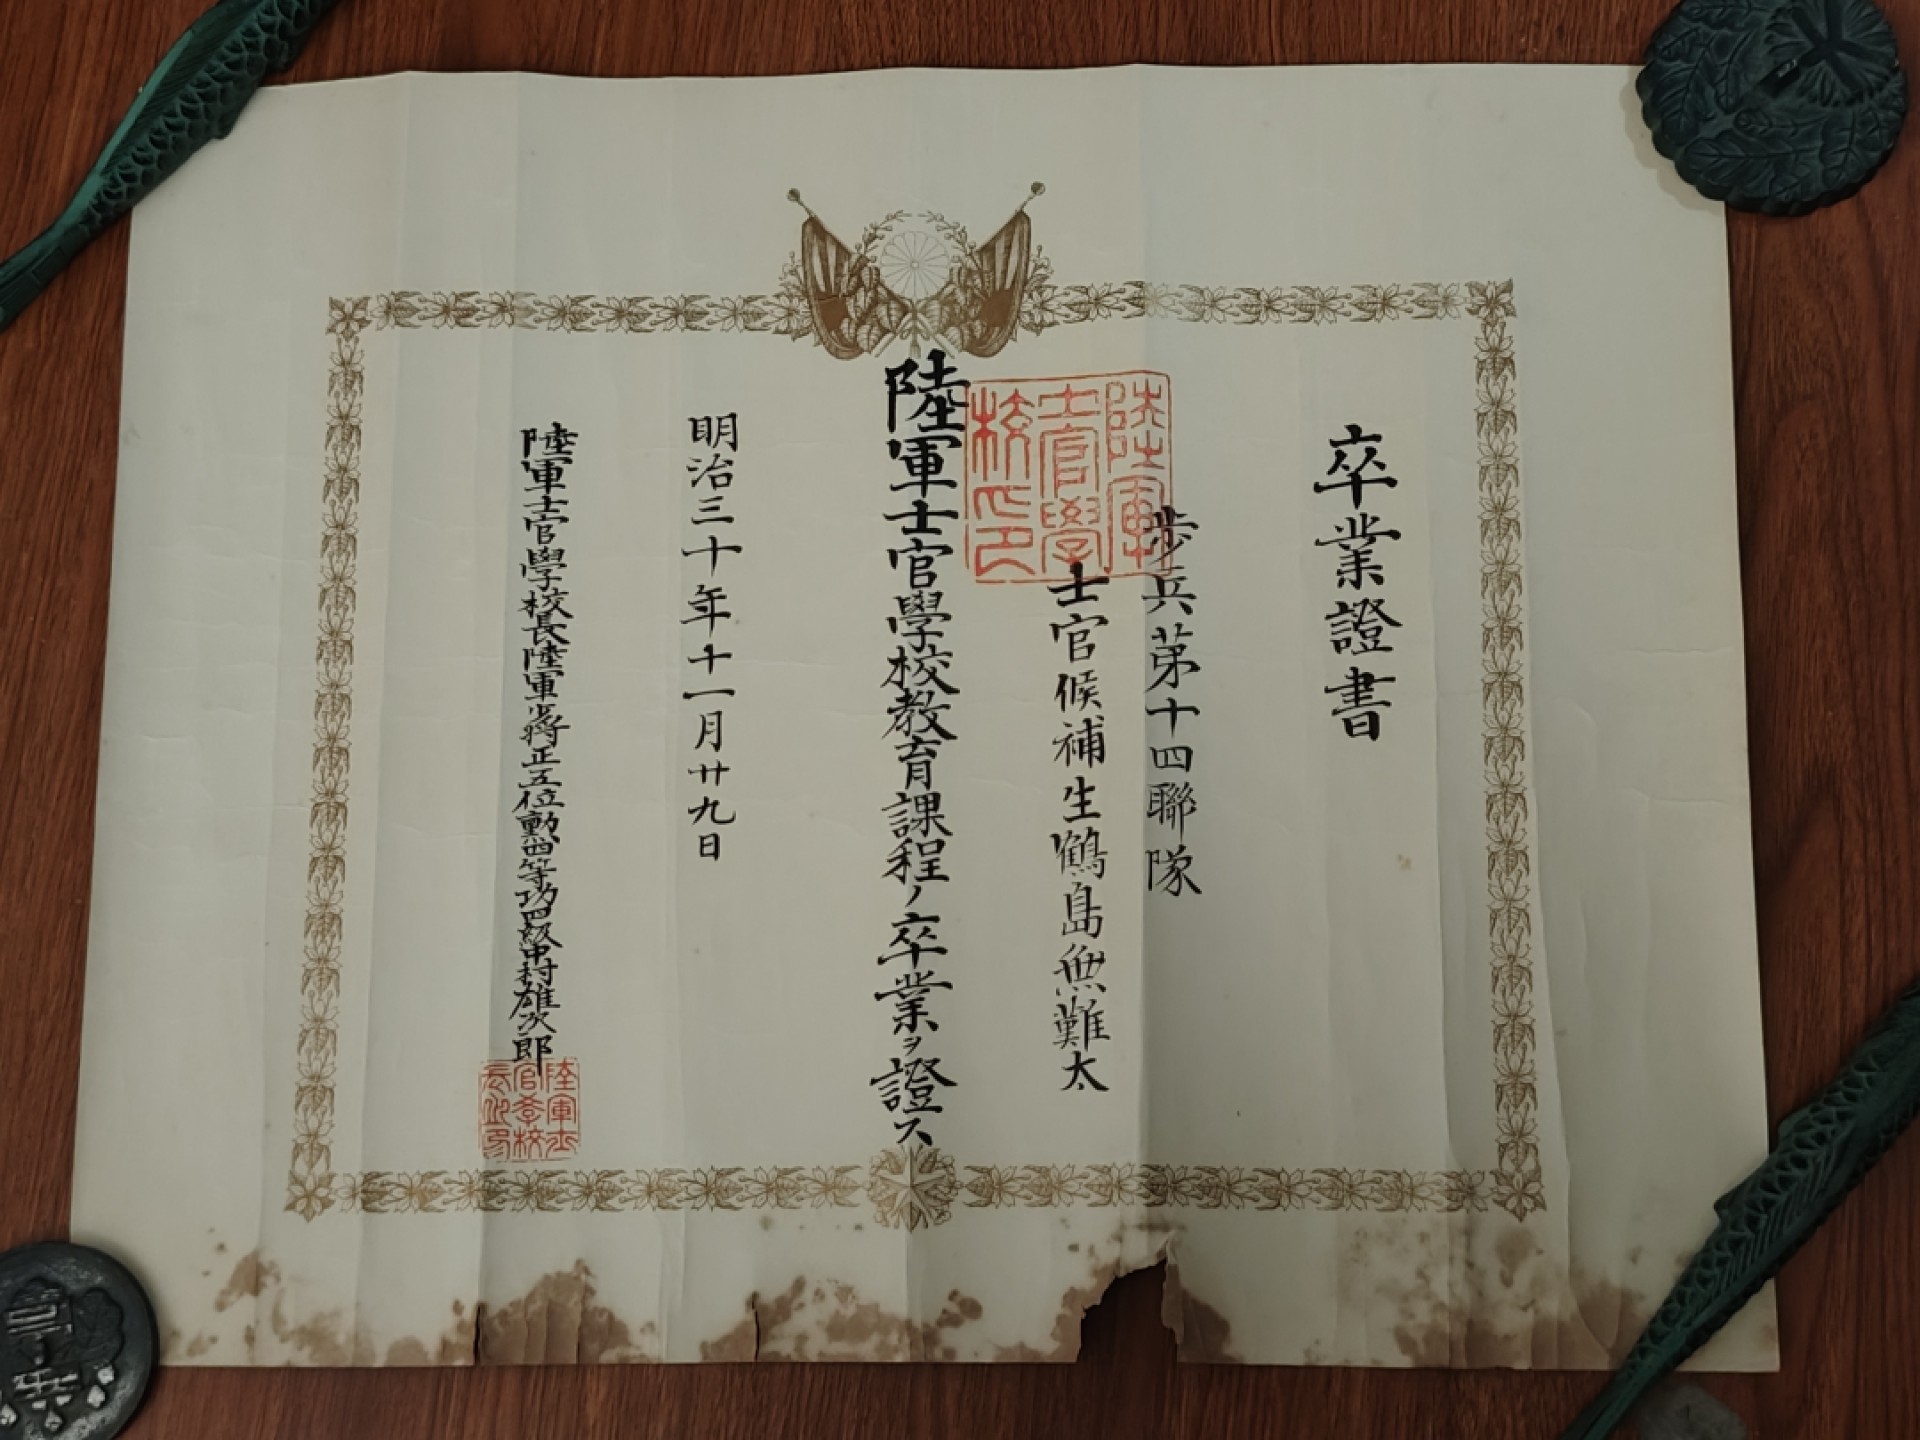 卒業證書
歩兵第十四聯隊
士官候補生鶴島無難太
陸軍士官學校教育課程ノ卒業ヲ證ス
明治三十年十一月廿九日
陸軍士官學校長陸軍少将正五位勲四等功四級中村雄次郎
陸軍
士官學
校印
陸軍士
官學校
長之印